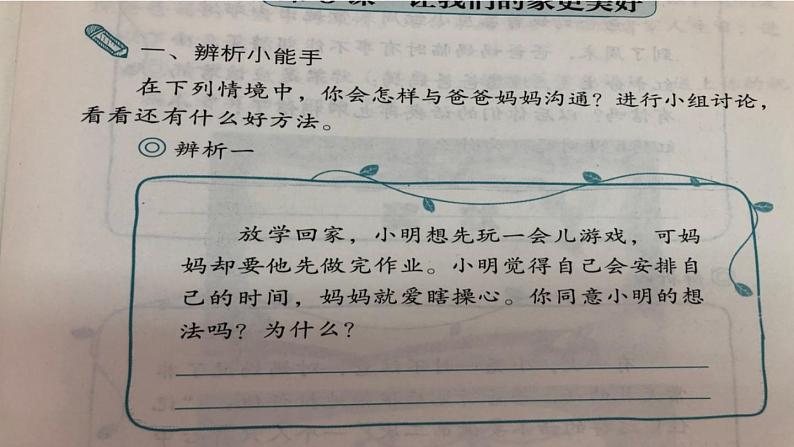 课 让我们的家更美好
一、辨析小能手
在下列情境中，你会怎样与爸爸妈妈沟通？进行小组讨论，
看看还有什么好方法。
◎ 辨析一
放学回家，小明想先玩一会儿游戏，可妈
妈却要他先做完作业。小明觉得自己会安排自
己的时间，妈妈就爱瞎操心。你同意小明的想
法吗？为什么？